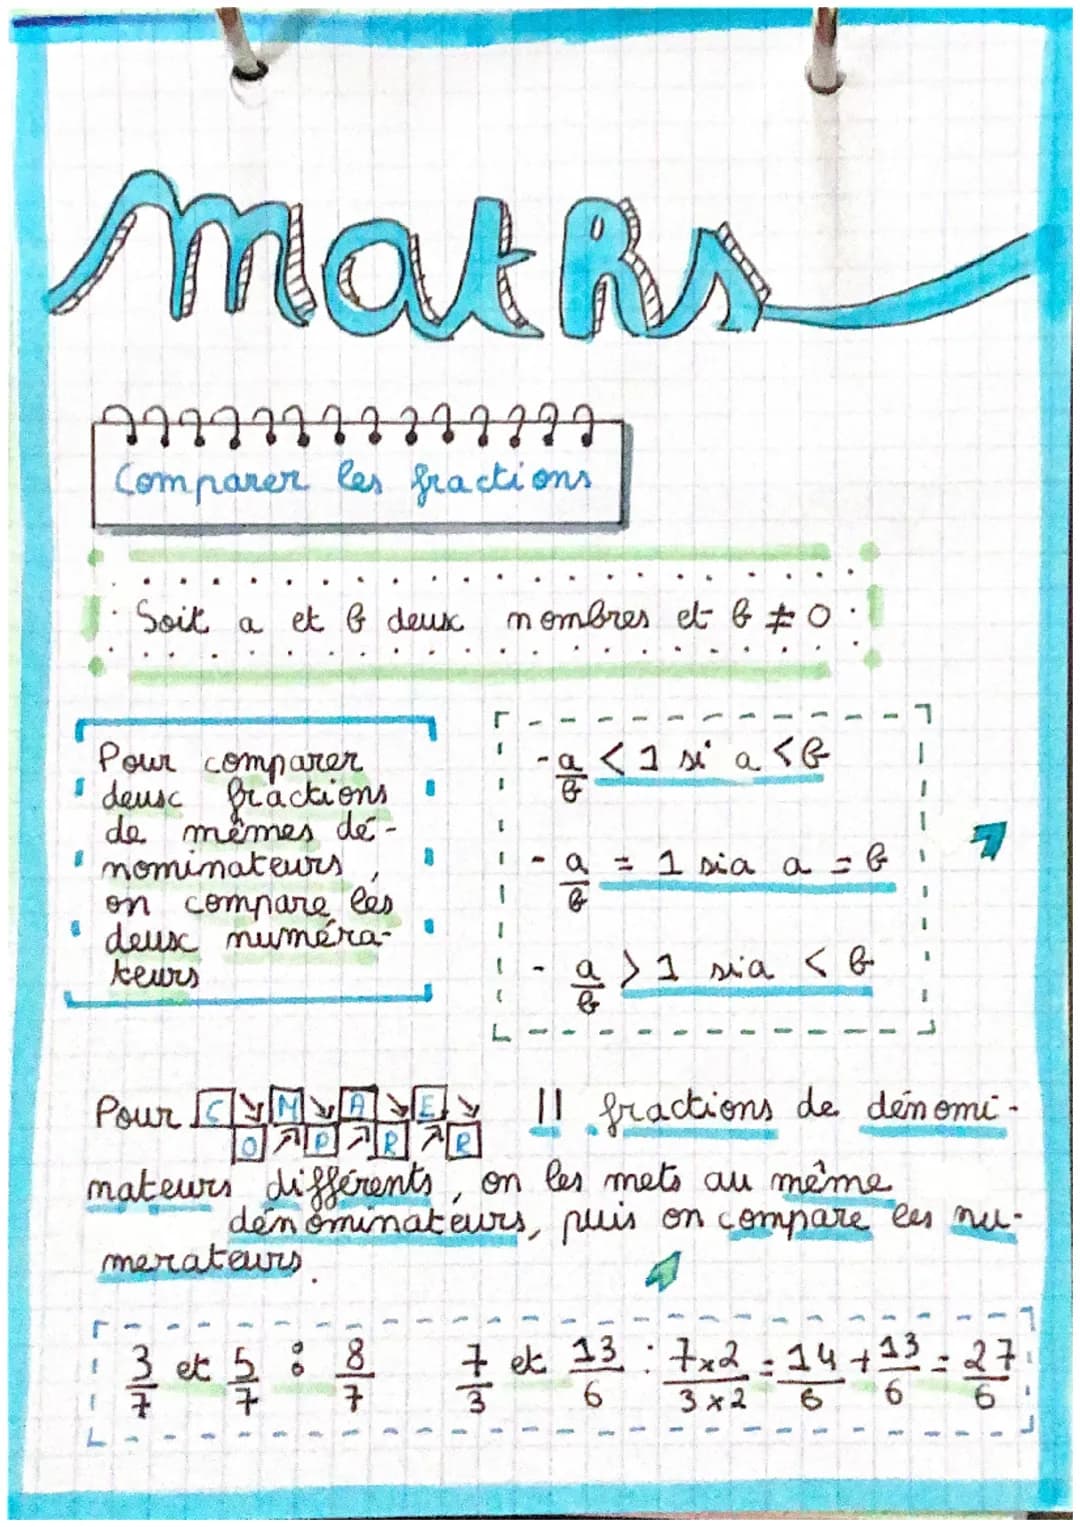 maths
Comparer les fractions
Soit a et b deux nombres et b ≠ 0
Pour comparer
deux fractions
de mêmes dé-
nominateurs,
on compare les
deux numéra-
teurs
- a/b < 1 si a < b
- a/b = 1 sia a = b
- a/b > 1 sia < b
Pour COMPARER 11 fractions de dénomi-
nateurs différents, on les mets au même
dénominateurs, puis on compare les nu-
merateurs.
3/7 et 5/7 : 8/7 7/3 et 13/6 : 7x2/3x2 = 14/6 + 13/6 = 27/6